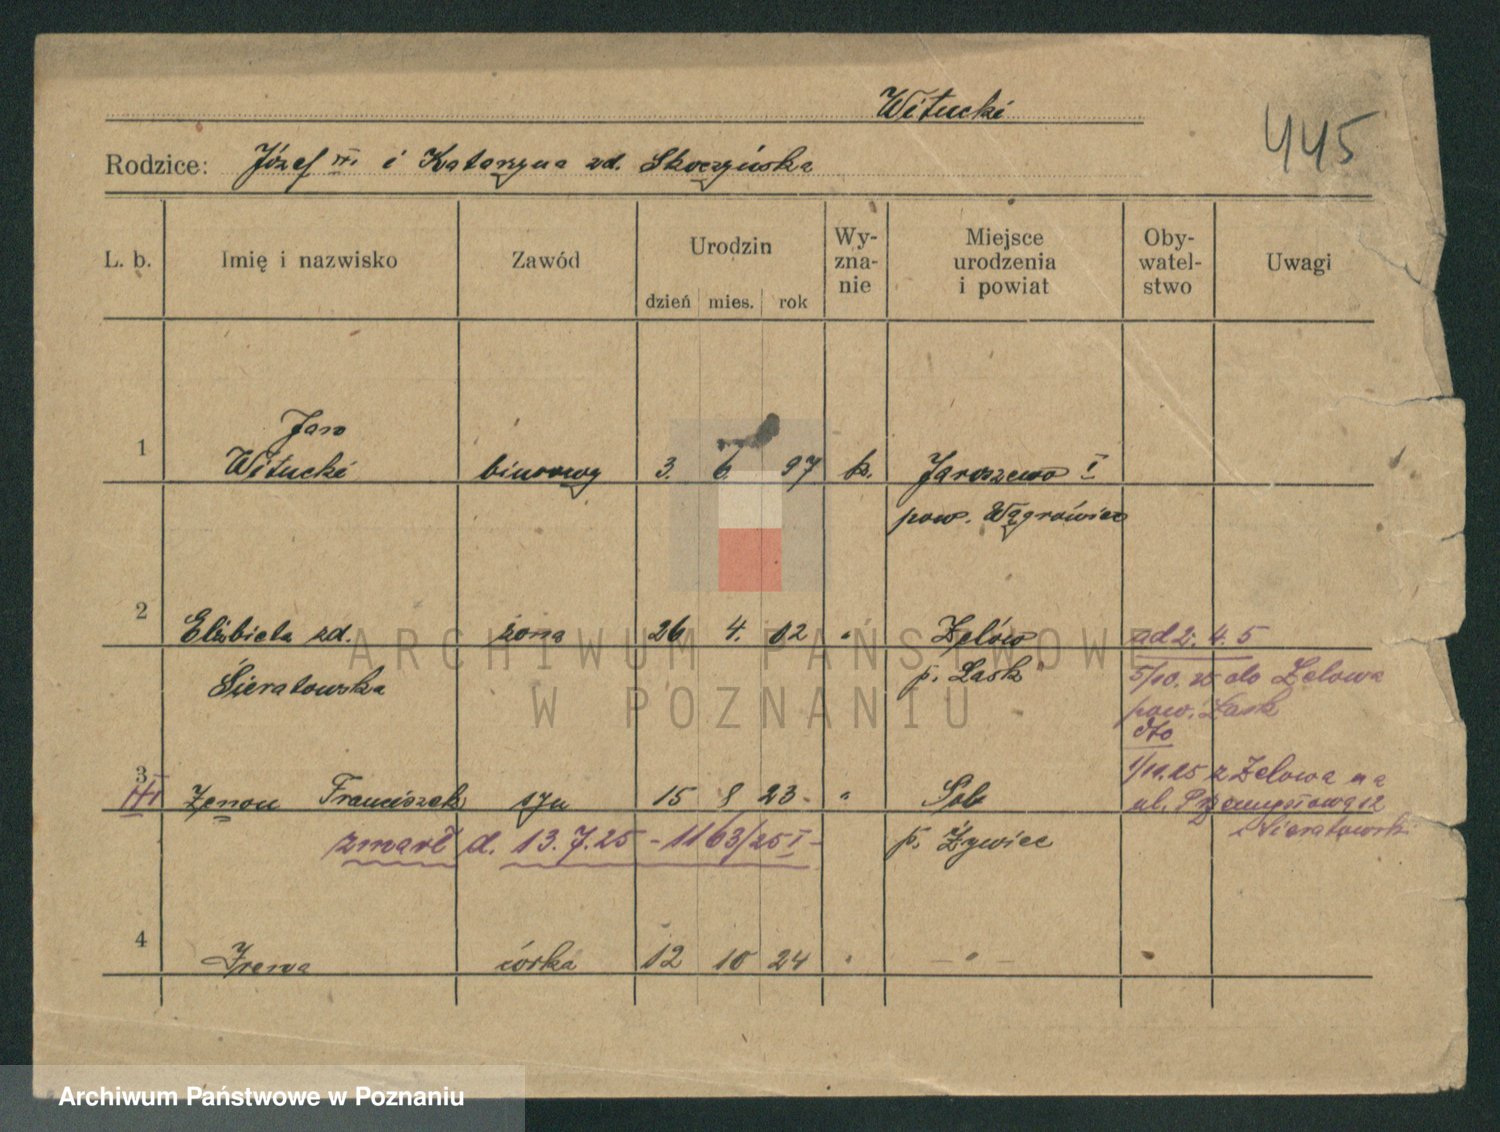 Witucki
445
Rodzice: Józef i Katarzyna zd. Skoczyńska
L. b. Imię i nazwisko Zawód Urodzin Wy-zna-nie Miejsce urodzenia i powiat Oby-watel-stwo Uwagi
dzień mies. rok
Jan
1 Witucki biurowy 3. 6. 97 k. Jaroszewo I
pow. Wągrówiec
2 Elżbieta zd. żona 26 4. 02 " Zelów ad 2. 4. 5
Sieratowska p. Łask 5/10. 25 do Zelowa
pow. Łask
dto
1/10.25 z Zelowa na
3 Zenon Franciszek syn 15 8 23 " Sól ul. Przemysłowa 12
Sieratowski
zmarł d. 13.7.25 - 1163/25 I - p. Żywiec
4 Irena córka 12 10 24 " - " -
ARCHIWUM PAŃSTWOWE
W POZNANIU
Archiwum Państwowe w Poznaniu